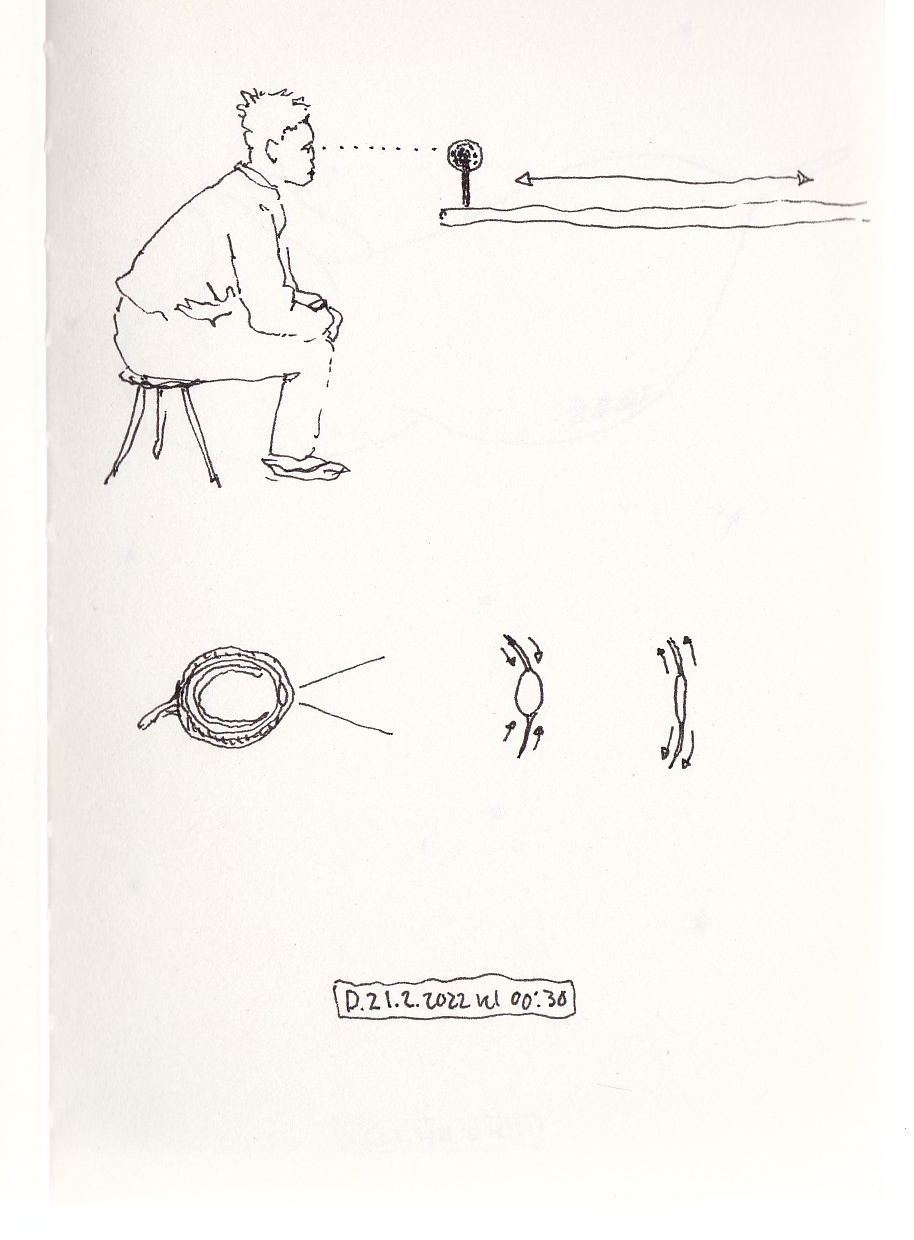 D.21.2.2022 kl 00:30